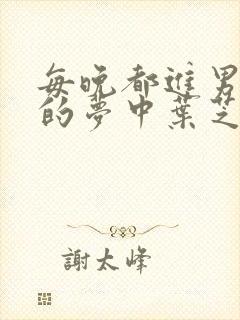 每晚都進男
的夢中葉芝
謝太峰